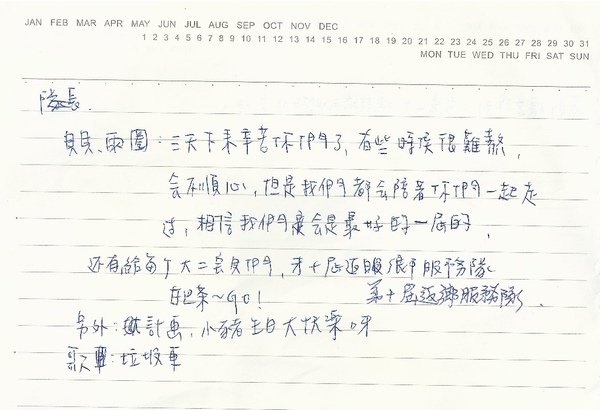 JAN FEB MAR APR MAY JUN JUL AUG SEP OCT NOV DEC
1 2 3 4 5 6 7 8 9 10 11 12 13 14 15 16 17 18 19 20 21 22 23 24 25 26 27 28 29 30 31
MON TUE WED THU FRI SAT SUN
隊長
貝貝、雨圈：三天下來辛苦你們了，有些時候很難熬，
會不順心，但是我們都會陪著你們一起走
過，相信我們會是最好的一屆的，
还有給每个大二会員們，第十屆返服務隊
在~GO!
第十屆返鄉服務隊
另外：計画，小豬生日大快樂呀
歌單：垃圾車